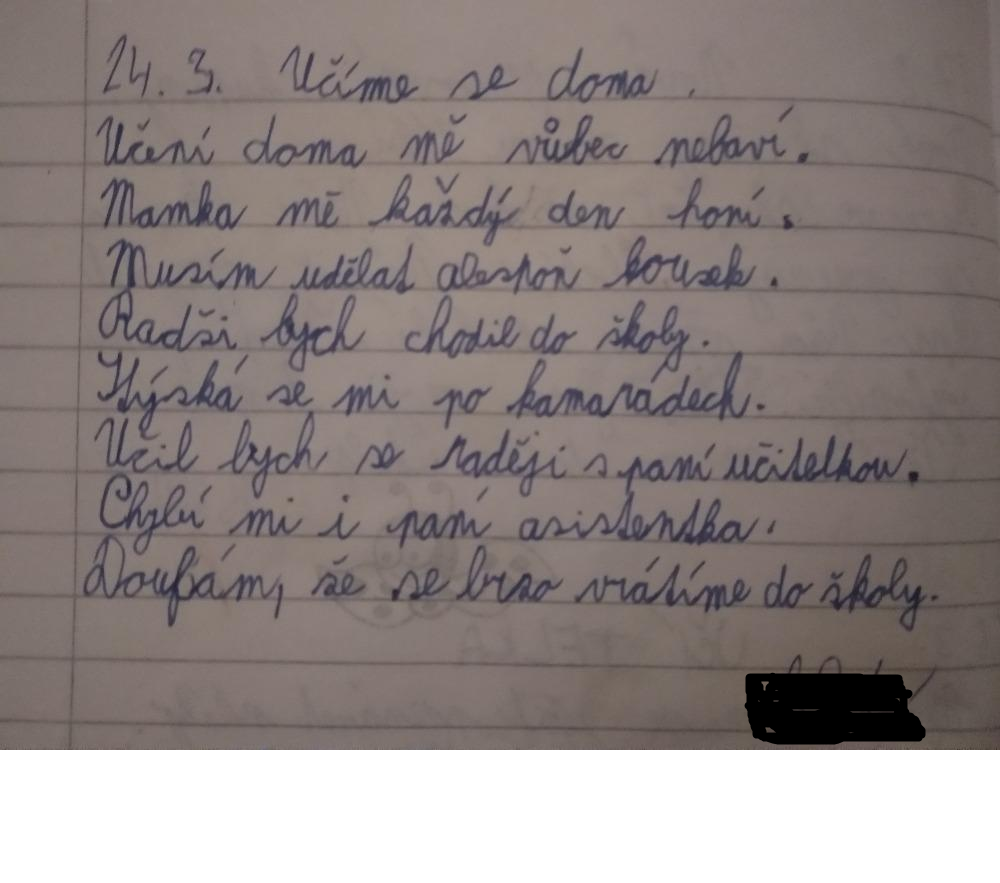 24. 3. Učíme se doma.
Učení doma mě vůbec nebaví.
Mamka mě každý den honí.
Musím udělat alespoň kousek.
Radši bych chodil do školy.
Stýská se mi po kamarádech.
Učil bych se raději s paní učitelkou.
Chybí mi i paní asistentka.
Doufám, že se brzo vrátíme do školy.